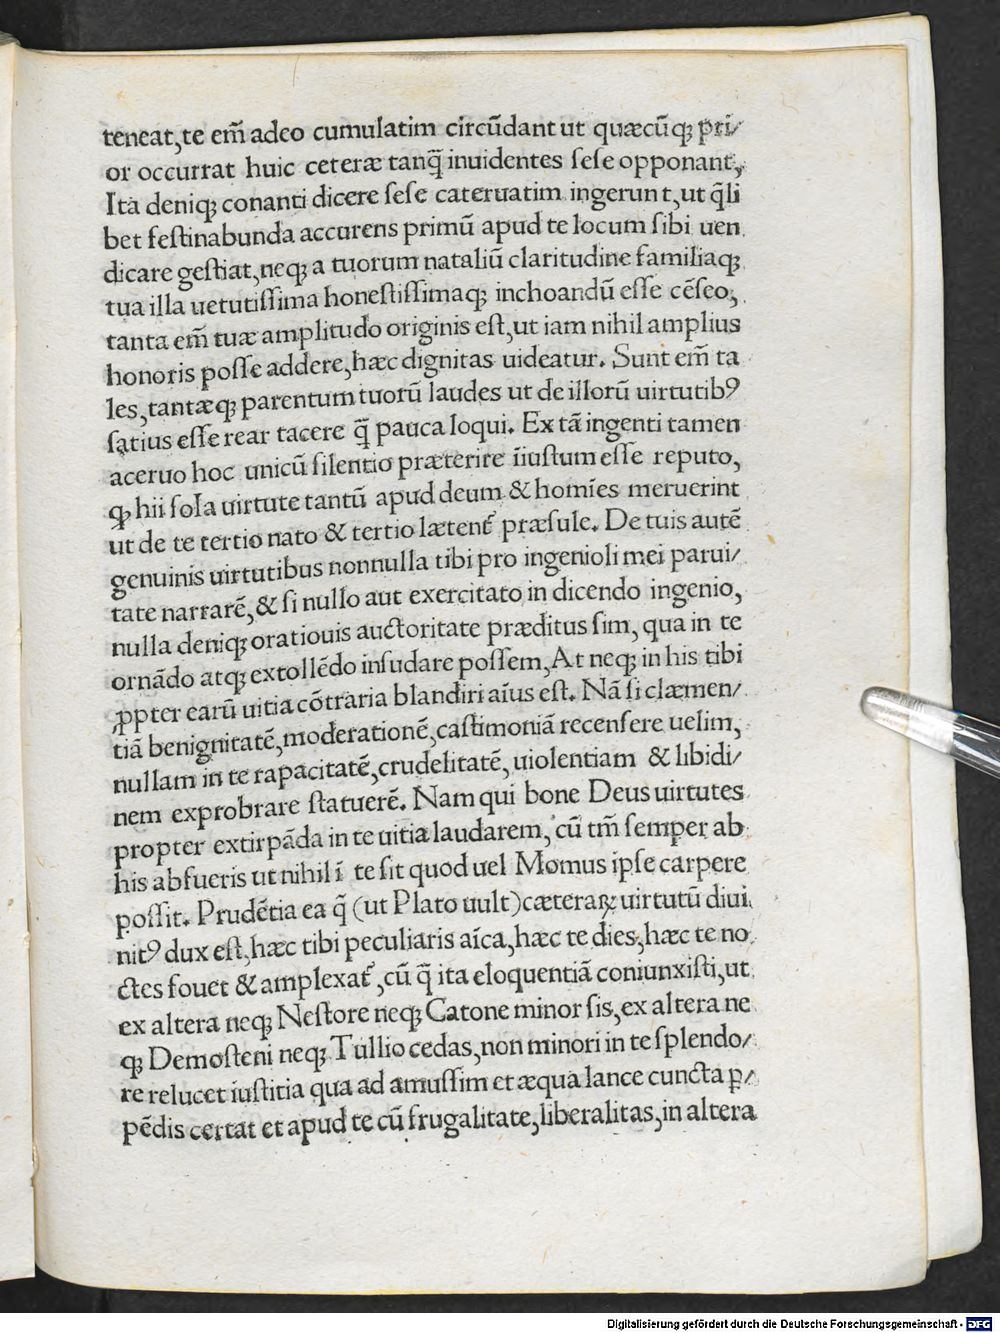 teneat, te em̃ adeo cumulatim circũdant ut quæcũqꝫ pri/
or occurrat huic ceteræ tanq̃ inuidentes sese opponant,
Ita deniqꝫ conanti dicere sese cateruatim ingerunt, ut q̃li
bet festinabunda accurens primũ apud te locum sibi uen
dicare gestiat, neqꝫ a tuorum nataliũ claritudine familiaqꝫ
tua illa uetutissima honestissimaqꝫ inchoandũ esse cẽseo,
tanta em̃ tuæ amplitudo originis est, ut iam nihil amplius
honoris posse addere, hæc dignitas uideatur. Sunt em̃ ta
les, tantæqꝫ parentum tuorũ laudes ut de illorũ uirtutibꝰ
satius esse rear tacere q̃ pauca loqui. Ex tã ingenti tamen
aceruo hoc unicũ silentio præterire ĩiustum esse reputo,
qꝫ hii sola uirtute tantũ apud deum & homĩes meruerint
ut de te tertio nato & tertio lætent᷑ præsule. De tuis autẽ
genuinis uirtutibus nonnulla tibi pro ingenioli mei parui/
tate narrarẽ, & si nullo aut exercitato in dicendo ingenio,
nulla deniqꝫ oratiouis auctoritate præditus sim, qua in te
ornãdo atqꝫ extollẽdo insudare possem, At neqꝫ in his tibi
ꝓpter earũ uitia cõtraria blandiri aĩus est. Nã si clæmen/
tiã benignitatẽ, moderationẽ, castimoniã recensere uelim,
nullam in te rapacitatẽ, crudelitatẽ, uiolentiam & libidi/
nem exprobrare statuerẽ. Nam qui bone Deus uirtutes
propter extirpãda in te uitia laudarem, cũ tm̃ semper ab
his abfueris ut nihil ĩ te sit quod uel Momus ipse carpere
possit. Prudẽtia ea q̃ (ut Plato uult) cæteraꝝ uirtutũ diui
nitꝰ dux est, hæc tibi peculiaris aĩca, hæc te dies, hæc te no
ctes fouet & amplexat᷑, cũ q̃ ita eloquentiã coniunxisti, ut
ex altera neqꝫ Nestore neqꝫ Catone minor sis, ex altera ne
qꝫ Demosteni neqꝫ Tullio cedas, non minori in te splendo/
re relucet iustitia qua ad amussim et æqua lance cuncta ꝑ/
pẽdis certat et apud te cũ frugalitate, liberalitas, in altera
Digitalisierung gefördert durch die Deutsche Forschungsgemeinschaft - DFG